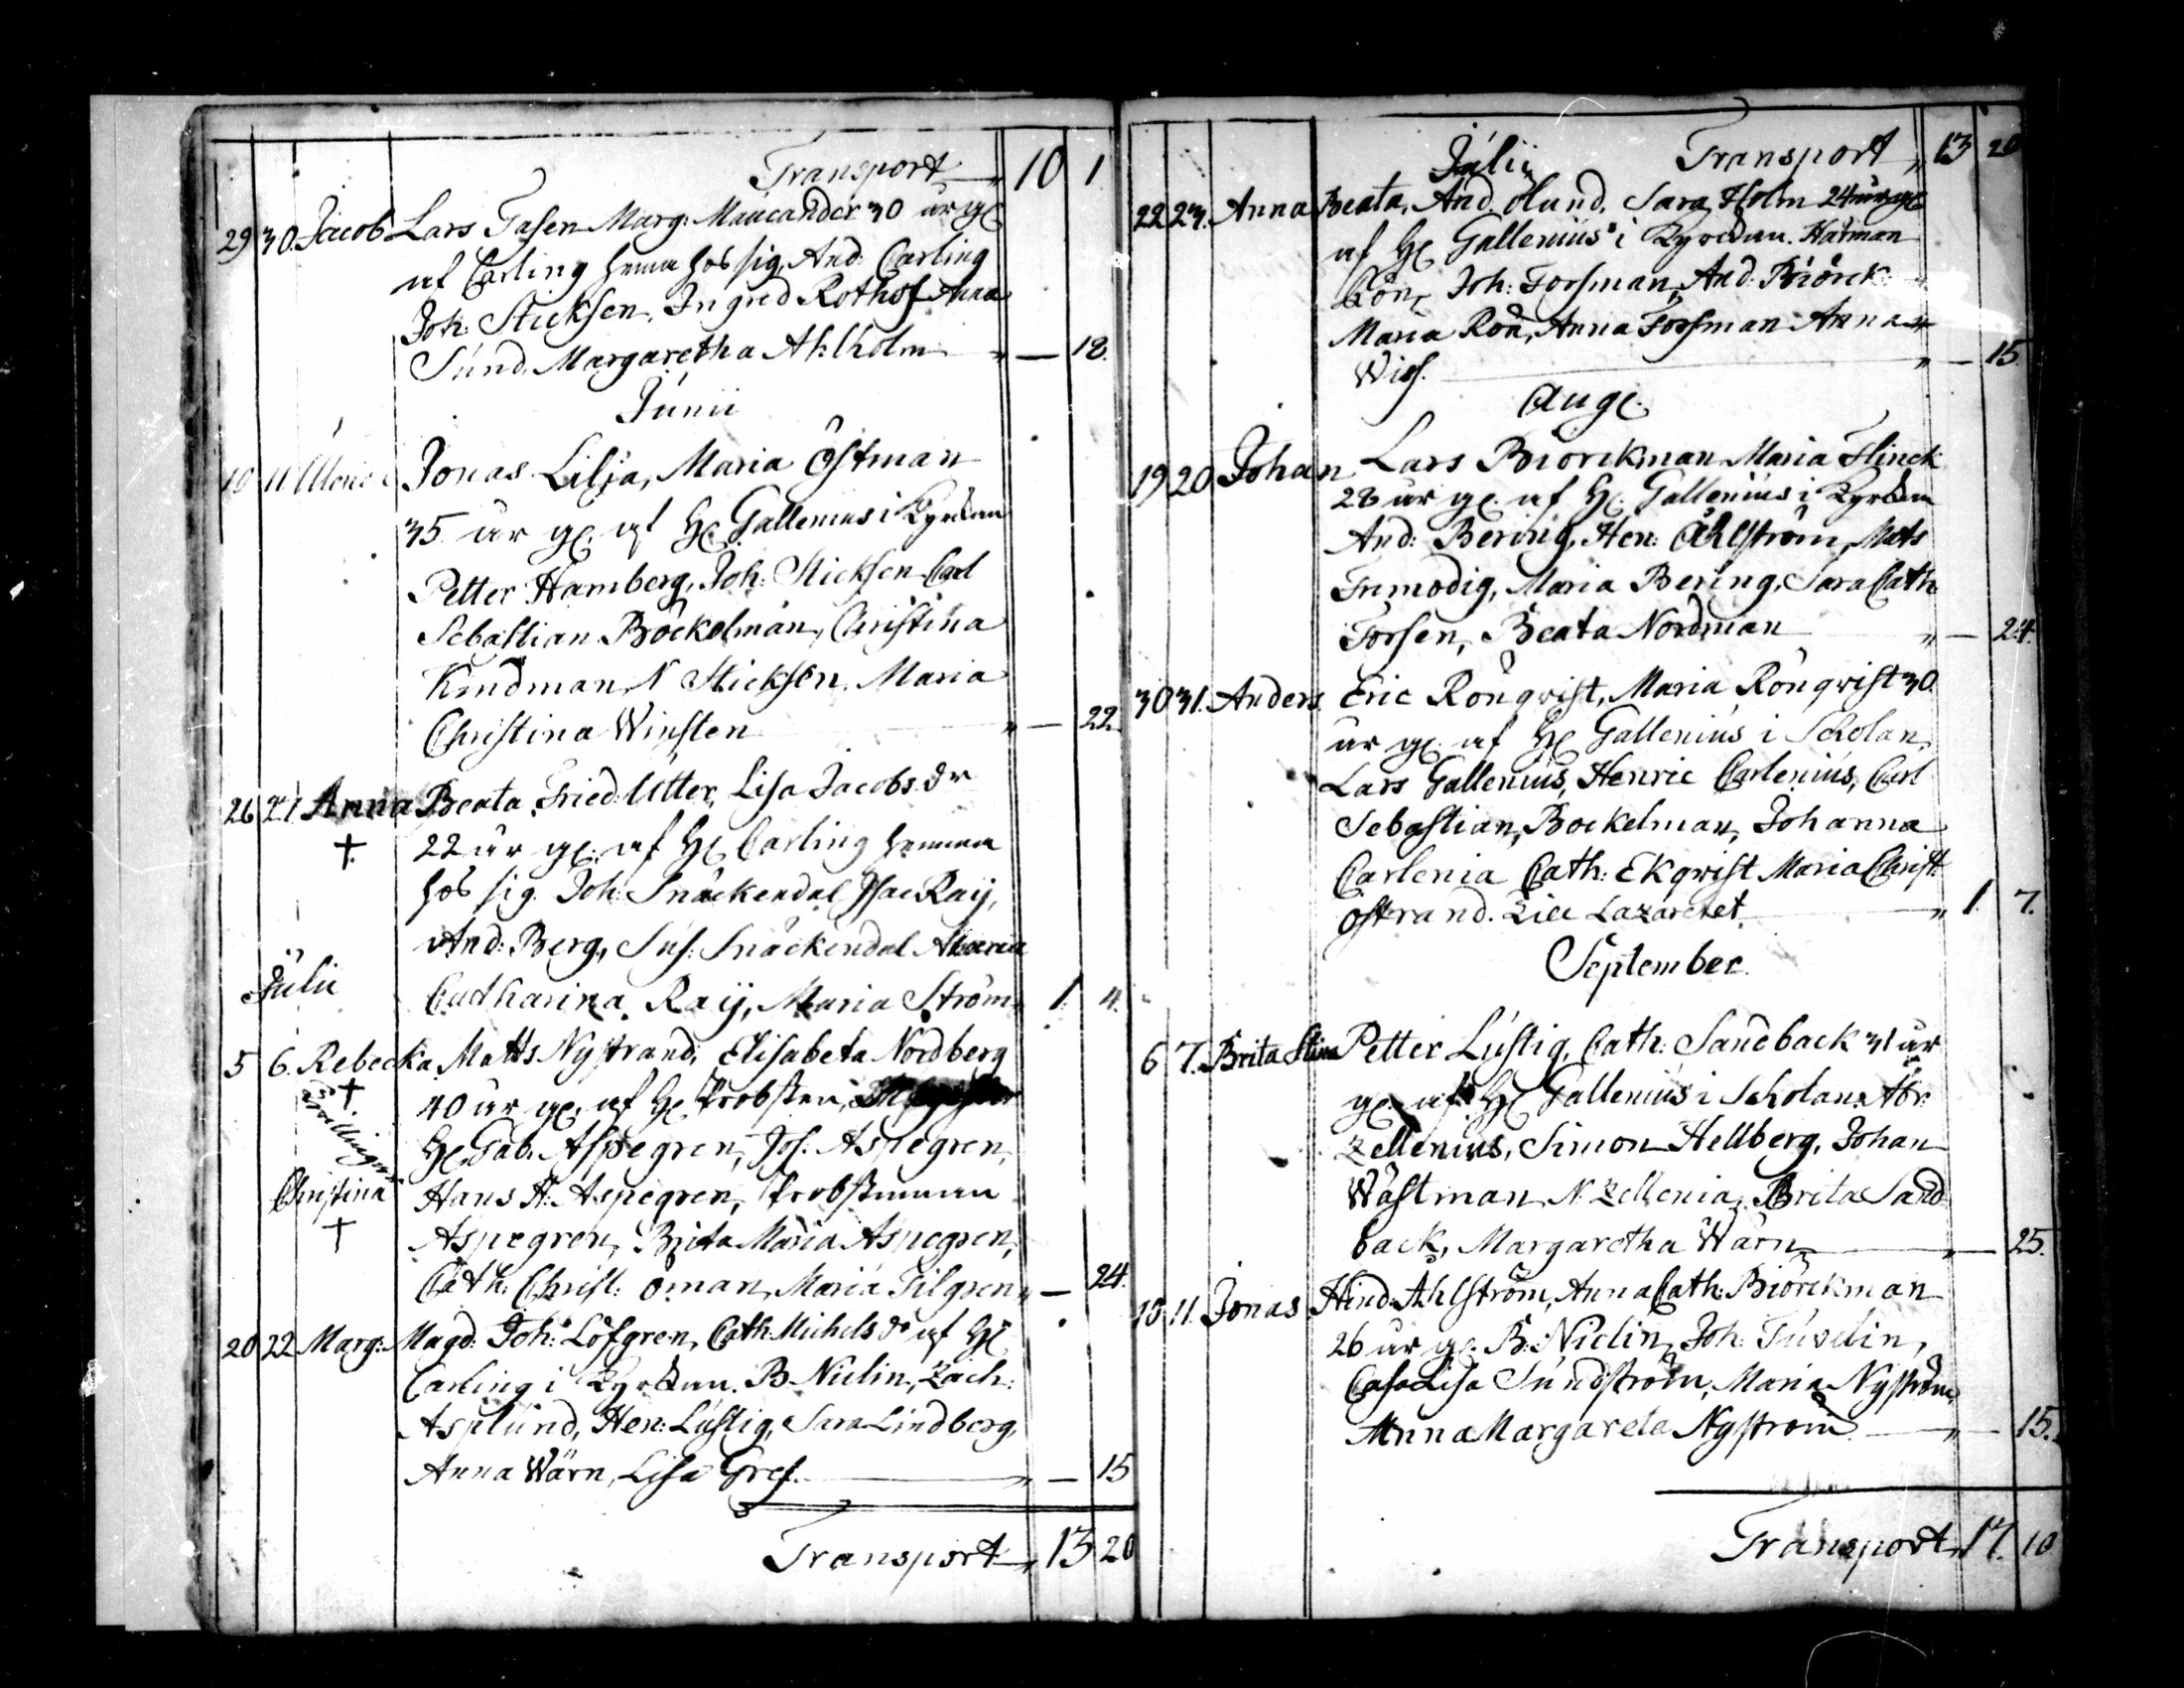 Transport „ 10 1
29 30. Jacob Lars Fasen Marg: Maucander 30 år ge
af Carling hema hos sig, And: Carling
Joh: Sticksen, Ingred Rothof Anna
Sund, Margaretha Ahlholm „ — 18.
Junii
10 11 Jonas Lilja, Maria Östman
35 år ge. af Hr Gallenius i Kyrckan
Petter Hamberg, Joh: Sticksen Carl
Sebastian Böckelman, Christina
Kindman, N Sticksen, Maria
Christina Winsten „ — 22.
26 27 Anna Beata, Fried: Utter, Lisa Jacobs dr
+ 22 år ge. af Hr Carling hemma
hos sig. Joh: Snäckendal Isac Raij,
And: Berg, Sus: Snäckendal Maria
Julii Catharina Raij, Maria Ström „ 1. 4.
5 6. Rebecka Matts Nystrand, Elisabeta Nordberg
+ 40 år ge. af Hr Probsten,
Tvillingar Hr Gab. Aspegren, Jos. Aspegren,
Christina Hans H: Aspegren, Probstinnan
+ Aspegren, Brita Maria Aspegren,
Cath: Christ: Öman, Maria Tilgren „ — 24.
20 22 Marg: Magd: Joh: Löfgren, Cath: Michels dr af Hr
Carling i Kyrckan. B. Niclin, Zach:
Asplund, Hen: Lustig, Sara Lindberg,
Anna Wärn, Lisa Gref. „ — 15
Transport „ 13 20
Julii Transport „ 13 20
22 23. Anna Beata, And Ölund, Sara Holm 24 år ge
af Hr Gallenius i Kyrckan. Härman
Rön, Joh: Forsman, And: Biörck
Maria Rön, Anna Forsman Anna
Wiss. „ — 15.
Aug.
19 20 Johan Lars Biörckman Maria Flinck
28 år ge. af Hr Gallenius i Kyrckan
And: Bering, Hen: Åhlström, Mats
Frimodig, Maria Bering, Sara Cath
Forsen, Beata Nordman „ — 24.
30 31. Anders Eric Rönqvist, Maria Rönqvist 30
år ge. af Hr Gallenius i Scholan,
Lars Gallenius, Henric Carlenius, Carl
Sebastian, Bockelman, Johanna
Carlenia Cath: Ekqwist Maria Christ:
Östrand. Till Lazaretet „ 1. 7.
September.
6 7. Brita Stina Petter Lustig, Cath: Sandback 31 år
ge. af Hr Gallenius i Scholan. Abr:
Zellenius, Simon Hellberg, Johan
Wästman N. Zellenia, Brita Sand
back, Margaretha Wärn „ — 25.
10 11. Jonas Hind: Ahlström, Anna Cath: Biörckman
26 år ge. B: Niclin, Joh: Tuvelin,
Casa Lisa Sundström, Maria Nyström,
Anna Margareta Nyström „ — 15.
Transport „ 17. 10